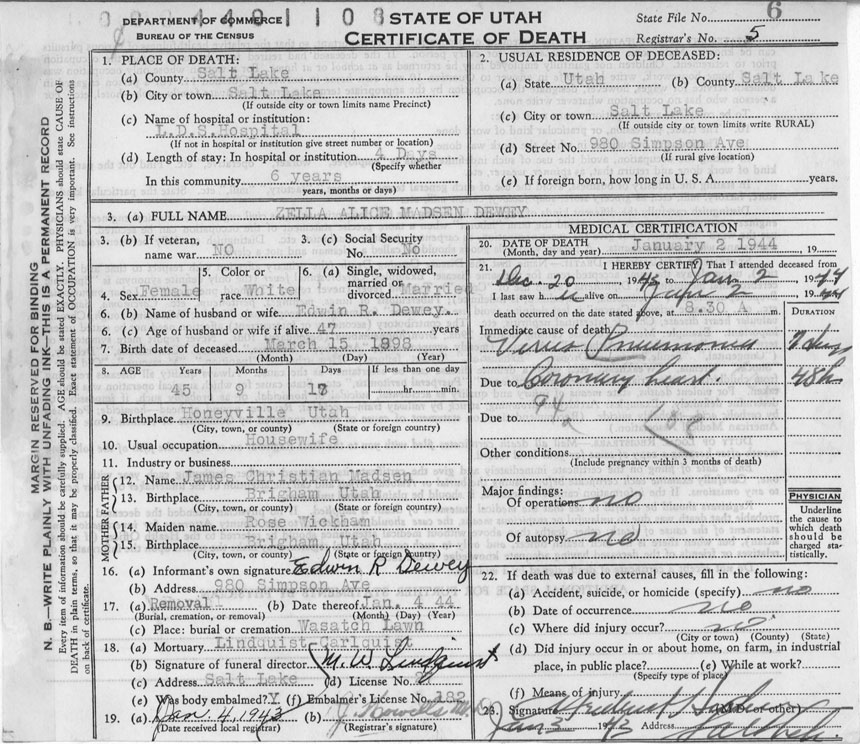 DEPARTMENT OF COMMERCE
BUREAU OF THE CENSUS
STATE OF UTAH
CERTIFICATE OF DEATH
State File No. 6
Registrar's No. 5
MARGIN RESERVED FOR BINDING
N. B.—WRITE PLAINLY WITH UNFADING INK—THIS IS A PERMANENT RECORD
Every item of information should be carefully supplied. AGE should be stated EXACTLY. PHYSICIANS should state CAUSE OF
DEATH in plain terms, so that it may be properly classified. Exact statement of OCCUPATION is very important. See instructions
on back of certificate.
1. PLACE OF DEATH:
(a) County Salt Lake
(b) City or town Salt Lake
(If outside city or town limits name Precinct)
(c) Name of hospital or institution:
L.D.S.Hospital
(If not in hospital or institution give street number or location)
(d) Length of stay: In hospital or institution 4 Days
(Specify whether
In this community 6 years
years, months or days)
2. USUAL RESIDENCE OF DECEASED:
(a) State Utah (b) County Salt Lake
(c) City or town Salt Lake
(If outside city or town limits write RURAL)
(d) Street No. 980 Simpson Ave
(If rural give location)
(e) If foreign born, how long in U. S. A. years.
3. (a) FULL NAME ZELLA ALICE MADSEN DEWEY
3. (b) If veteran, name war No
3. (c) Social Security No. No
4. Sex Female
5. Color or race White
6. (a) Single, widowed, married or divorced Married
6. (b) Name of husband or wife Edwin R. Dewey.
6. (c) Age of husband or wife if alive 47 years
7. Birth date of deceased March 15 1898
(Month) (Day) (Year)
8. AGE Years Months Days If less than one day
45 9 hr. min.
9. Birthplace Honeyville Utah
(City, town, or county) (State or foreign country)
10. Usual occupation Housewife
11. Industry or business
FATHER
12. Name James Christian Madsen
13. Birthplace Brigham Utah
(City, town, or county) (State or foreign country)
MOTHER
14. Maiden name Rose Wickham
15. Birthplace Brigham Utah
(City, town, or county) (State or foreign country)
16. (a) Informant's own signature Edwin R Dewey
(b) Address 980 Simpson Ave
17. (a) Removal (b) Date thereof Jan. 4 44
(Burial, cremation, or removal) (Month) (Day) (Year)
(c) Place: burial or cremation Wasatch Lawn
18. (a) Mortuary Lindquist-Carlquist
(b) Signature of funeral director M. W. Lindquist
(c) Address Salt Lake (d) License No.
(e) Was body embalmed? Y (f) Embalmer's License No. 182
19. (a) Jan. 4, 1943 (b)
(Date received local registrar) (Registrar's signature)
MEDICAL CERTIFICATION
20. DATE OF DEATH January 2 1944 , 19
(Month, day and year)
21. I HEREBY CERTIFY That I attended deceased from
Dec. 20 19 Jan 2 1944
I last saw h alive on Jan 2 19
death occurred on the date stated above, at 8.30 A m.
DURATION
Immediate cause of death
Virus Pneumonia 7 days
Due to Coronary heart. 48h
Due to 94a
Other conditions
(Include pregnancy within 3 months of death)
Major findings:
Of operations no
Of autopsy no
PHYSICIAN
Underline
the cause to
which death
should be
charged sta-
tistically.
22. If death was due to external causes, fill in the following:
(a) Accident, suicide, or homicide (specify) no
(b) Date of occurrence no
(c) Where did injury occur? no
(City or town) (County) (State)
(d) Did injury occur in or about home, on farm, in industrial
place, in public place? (e) While at work?
(Specify type of place)
(f) Means of injury
23. Signature (M.D. or other)
Jan 3 19 Address